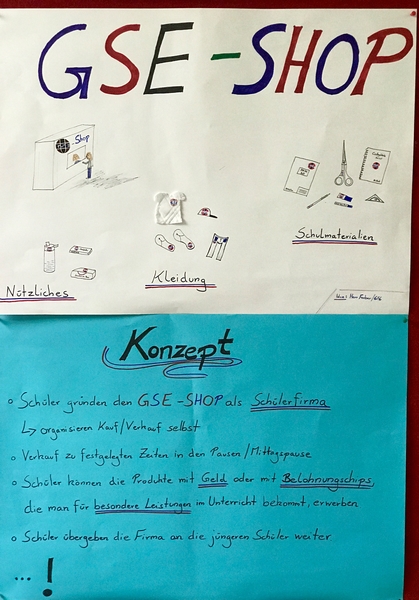 GSE-SHOP
Shop
Schulmaterialien
Kleidung
Nützliches
Konzept
Schüler gründen den GSE-SHOP als Schülerfirma
↳ organisieren Kauf/Verkauf selbst
Verkauf zu festgelegten Zeiten in den Pausen/Mittagspause
Schüler können die Produkte mit Geld oder mit Belohnungschips,
die man für besondere Leistungen im Unterricht bekommt, erwerben
Schüler übergeben die Firma an die jüngeren Schüler weiter
... !